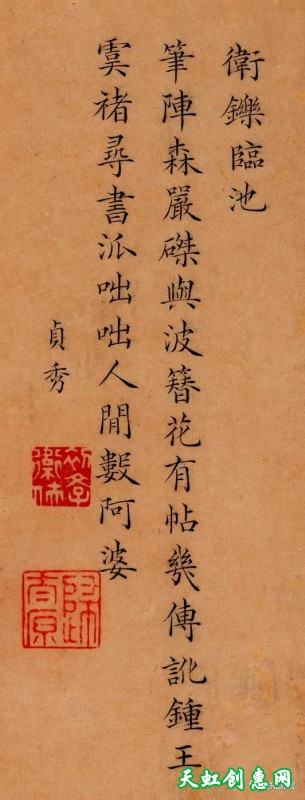 衛鑠臨池
筆陣森嚴磔與波簪花有帖幾傳訛鍾王
虞褚尋書派咄咄人閒數阿婆
貞秀
天虹创意网